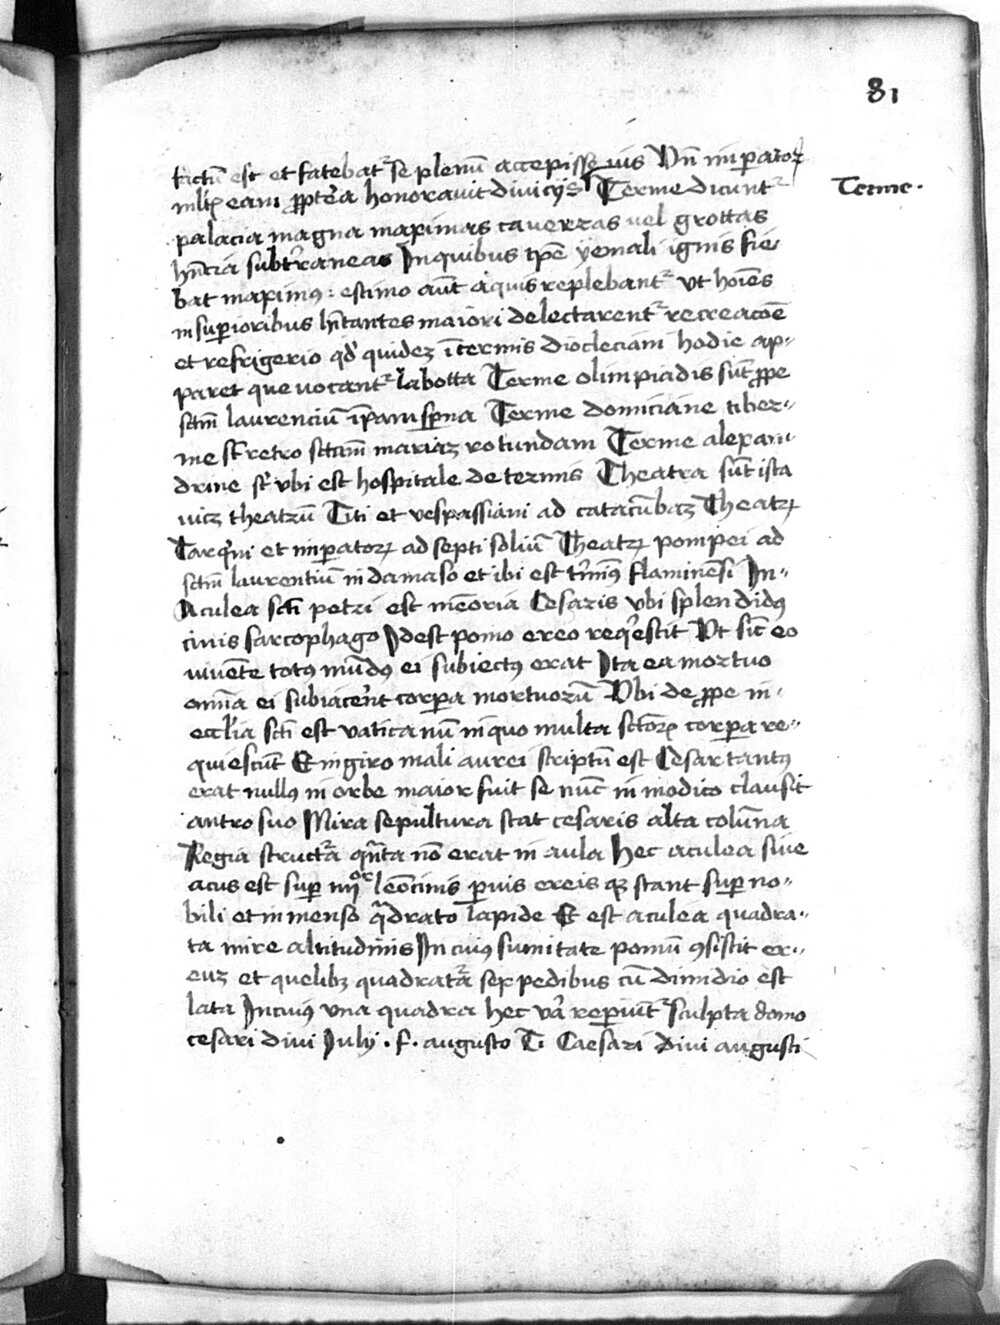 81
Terme.
factū est et fatebat᷑ se plenū accepisse ius Vn̄ imperator
mltū eam ꝓpterea honoravit divicijs Terme dicunt᷑
palacia magna maximas caverzas vel grottas
hn̄cia subterraneas In quibus tp̄e yemali ignis fie
bat maximꝰ: estimo aūt aquis replebant᷑ vt hoīes
in superioribus hītantes maiori delectarent᷑ recreacōe
et refrigerio qd̓ quidez ī termis diocleciani hodie ap-
paret que vocant᷑ labotta Terme olimpiadis sūt ꝓpe
sctm̄ laurenciū ī panisperna Terme domiciane tiber-
ine sūt retro sctam̄ mariaz rotundam Terme alexan-
drine sūt vbi est hospitale de termis Theatra sūt ista
vicz theatrū Titi et vespassiani ad catacūbaz Theatrꝝ
Tarqͥni et imperatorꝝ ad septisoliū Theatrꝝ pompei ad
sctm̄ laurentiū in damaso et ibi est t̓miꝰ flaminēsi In-
Aculea scti petri est mēoria Cesaris vbi splendidꝰ
cinis sarcophago Idest pomo ereo reqͥestit Vt sic̄ eo
viuēte totꝰ mūdꝰ ei subiectꝰ erat Ita ea mortuo
omīa ei subiacēnt corꝑa mortuorū Vbi de ꝓpe in-
eccl̓ia scti est vaticanū in quo multa sctōrꝝ corꝑa re-
quiescūt Et in giro mali aurei scriptū est Cesar tantꝰ
erat nullꝰ in orbe maior fuit se nūc in modico clausit
antro suo Mira sepultura stat cesaris alta colūna
Regia structᷓa qn̄ta nō erat in aula Hec aculea siue
acus est suꝑ iiijor leōcinis ꝑuis ereis qꝫ stant suꝑ no-
bili et inmenso qᷓdrato lapide Et est aculea quadra-
ta mire altitudinis In cuiꝰ sumitate pomū ꝯsistit er-
euz et quelibꝫ quadratᷓa sex pedibus cū dimidio est
lata In cuiꝰ vna quadra hec vᷓa reperiūt᷑ sculpta domo
cesari divi Iulij . f. augusto T. Caesari divi augusti